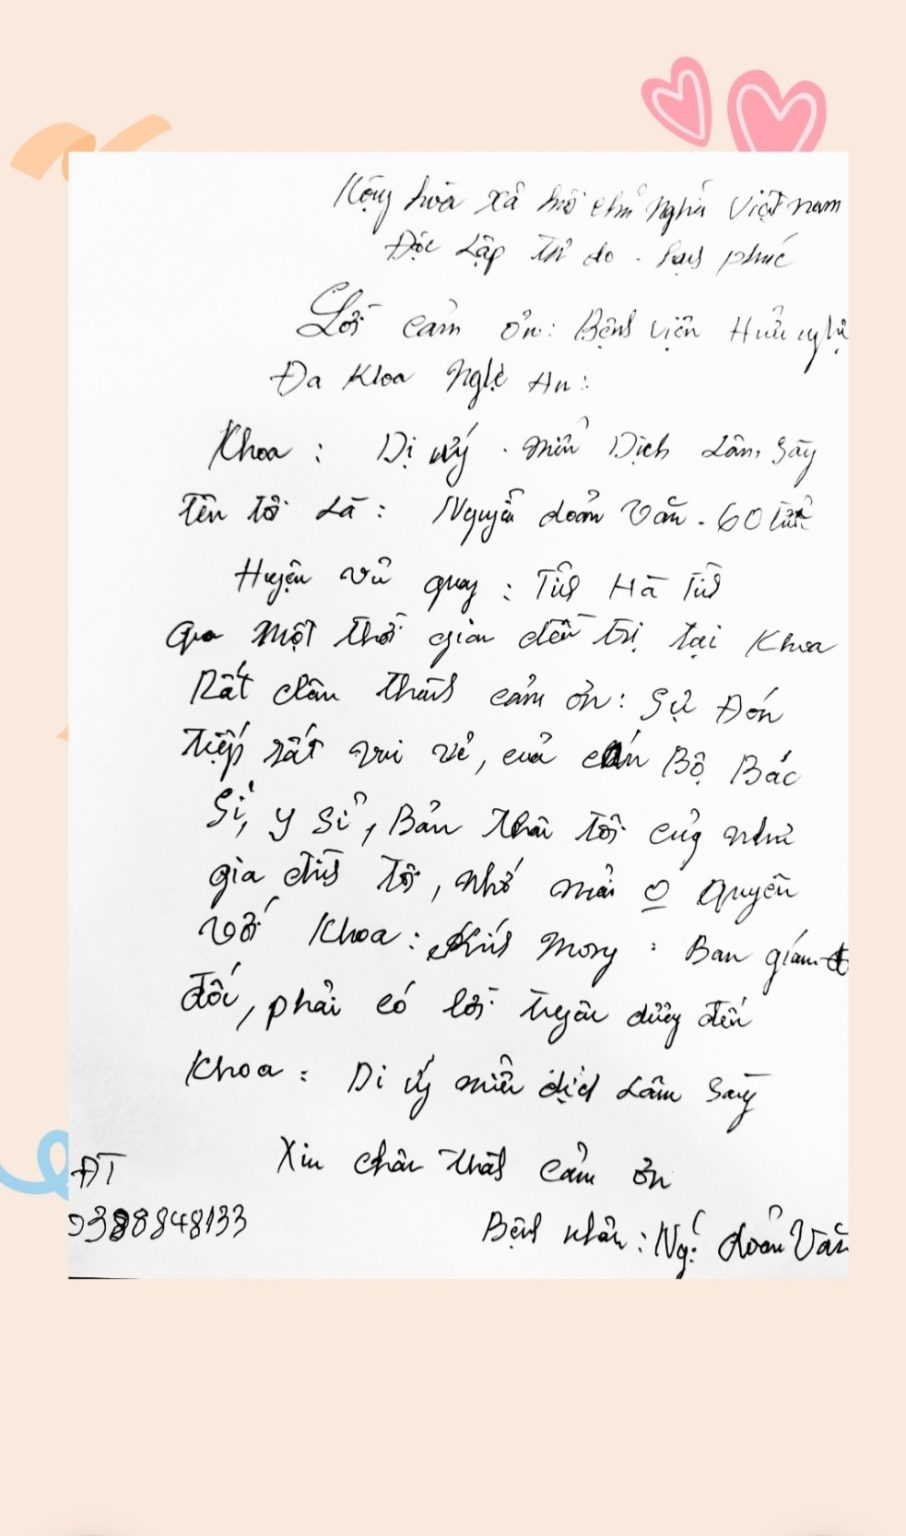 Cộng hòa xã hội chủ nghĩa Việt nam
Độc Lập tự do - hạnh phúc
Lời cảm ơn: Bệnh viện Hữu nghị
Đa Khoa Nghệ An:
Khoa: Dị ứng - miễn Dịch Lâm sàng
Tên tôi Là: Nguyễn doãn Văn - 60 tuổi
Huyện vũ quang: Tỉnh Hà Tĩnh
Qua một thời gian điều trị tại Khoa
Rất chân thành cảm ơn: Sự Đón
tiếp rất vui vẻ, của cán Bộ Bác
Sĩ, y sĩ, Bản thân tôi cũng như
gia đình tôi, nhớ mãi o quyên
với Khoa: Kính mong: Ban giám đ
đốc, phải có lời tuyên dương đến
Khoa: Dị ứng miễn dịch Lâm sàng
Xin chân thành cảm ơn
ĐT
0388848133
Bệnh nhân: Ng. doãn Văn